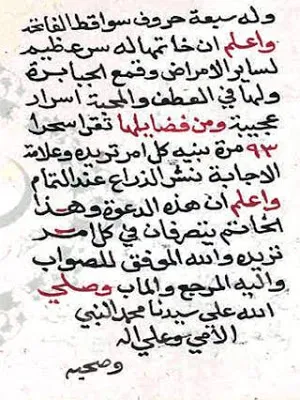 وله سبعة حروف سواقط الفاتحة
واعلم ان خاتمها له سر عظيم
لساير الامراض وقمع الجبابرة
ولها في العطف والمحبة اسرار
عجيبة ومن فضايلها تقرا سحرا
٩٣ مرة بنية كل امر تريده وعلامة
الاجابة نشر الذراع عند التمام
واعلم ان هذه الدعوة وهذا
الخاتم يتصرفان في كل امر
تريده والله الموفق للصواب
واليه المرجع والماب وصلي
الله علي سيدنا محمد النبي
الامي وعلي اله
وصحبه